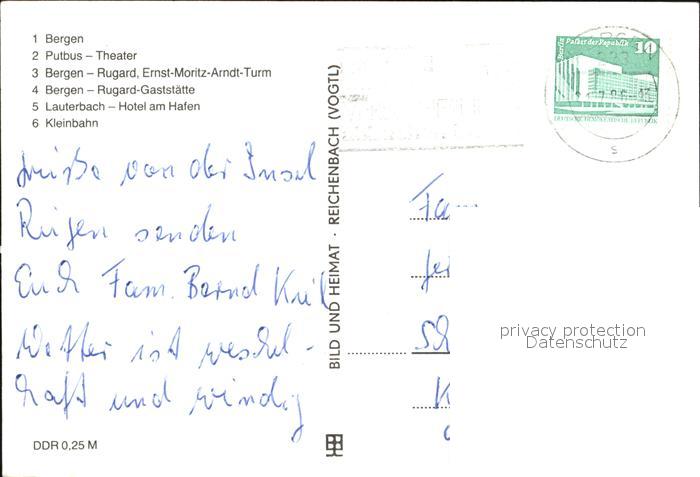 1 Bergen
2 Putbus – Theater
3 Bergen – Rugard, Ernst-Moritz-Arndt-Turm
4 Bergen – Rugard-Gaststätte
5 Lauterbach – Hotel am Hafen
6 Kleinbahn
Grüße von der Insel
Rügen senden
Euch Fam. Bernd
Wetter ist wechsel-
haft und windig
DDR 0,25 M
BILD UND HEIMAT · REICHENBACH (VOGTL)
Berlin Palast der Republik
10
DEUTSCHE DEMOKRATISCHE REPUBLIK
s
Fa
Sch
K
privacy protection
Datenschutz